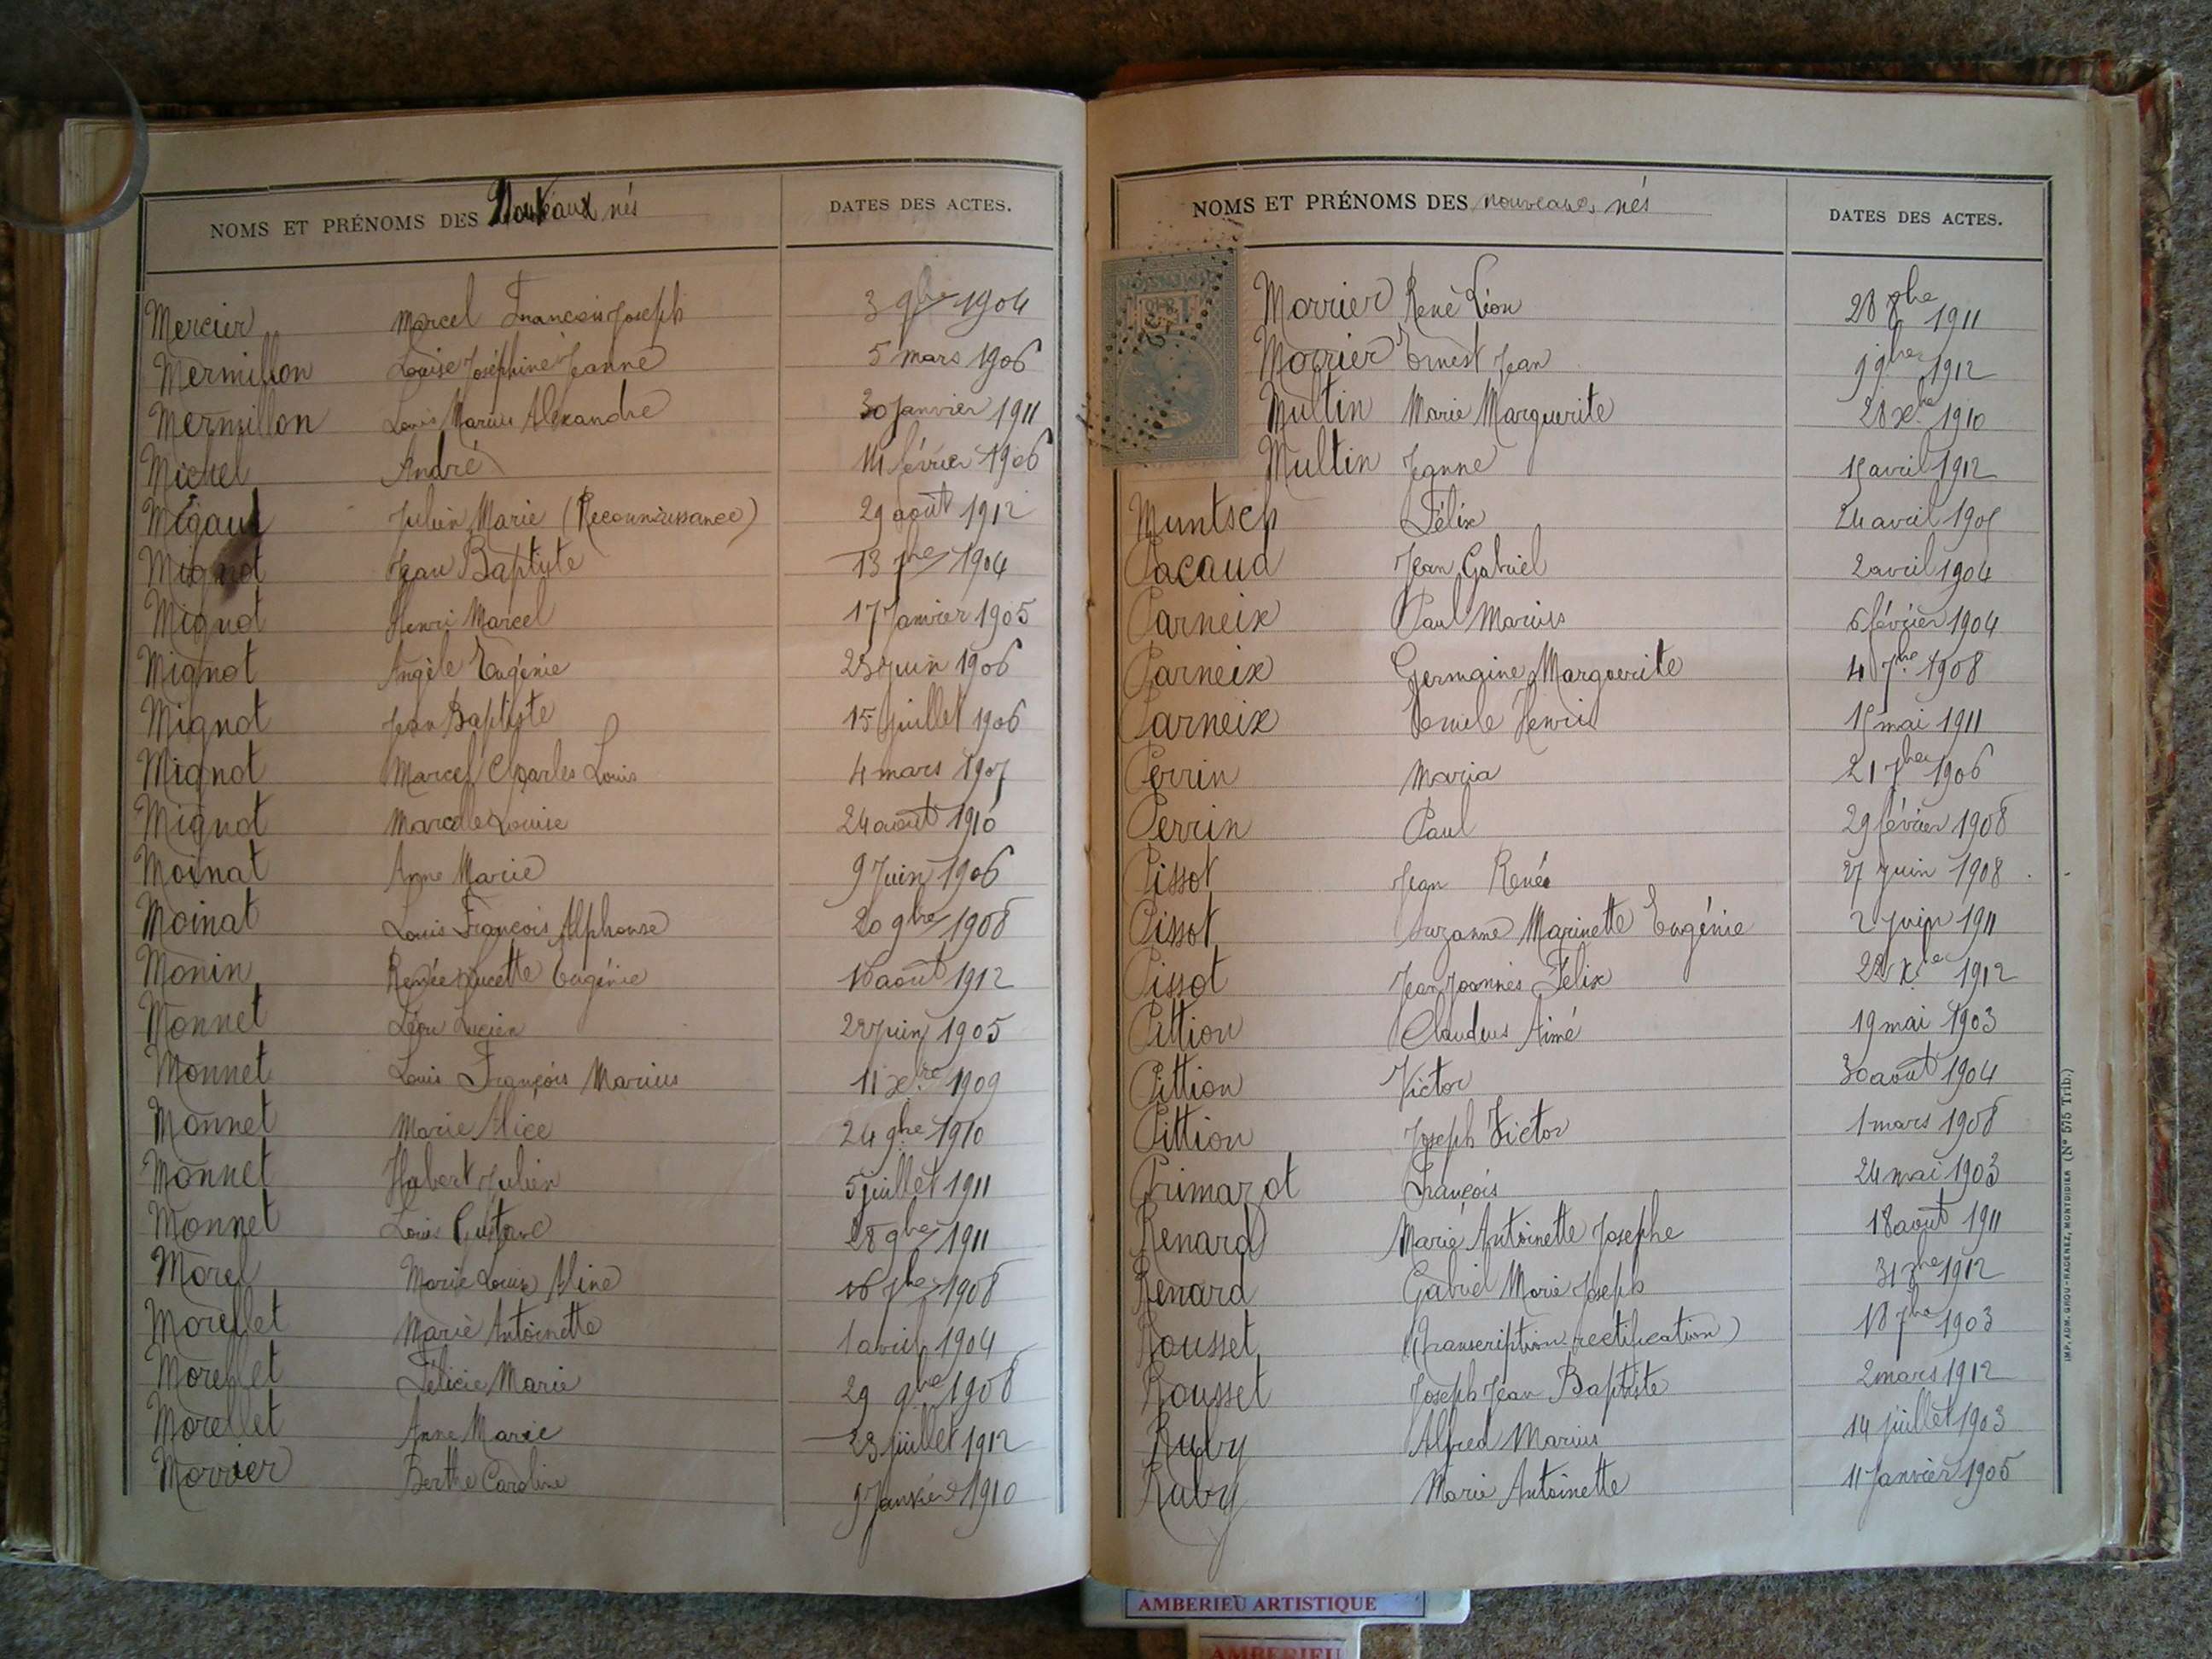 NOMS ET PRÉNOMS DES Nouveaux nés DATES DES ACTES.
Mercier Marcel François Joseph 3 9bre 1904
Mermillon Louise Joséphine Jeanne 5 mars 1906
Mermillon Louis Marius Alexandre 30 janvier 1911
Michel André février 1906
Migaud Julien Marie (Reconnaissance) 29 août 1912
Mignot Jean Baptiste 13 7bre 1904
Mignot Henri Marcel 17 Janvier 1905
Mignot Angèle Eugénie juin 1906
Mignot Jean Baptiste 15 juillet 1906
Mignot Marcel Charles Louis 4 mars 1907
Mignot Marcelle Louise 24 août 1910
Moinat Anne Marie 9 Juin 1906
Moinat Louis François Alphonse 20 9bre 1908
Monin Renée Lucette Eugénie 16 août 1912
Monnet Léon Lucien juin 1905
Monnet Louis François Marius 11 xbre 1909
Monnet Marie Alice 24 9bre 1910
Monnet Julien 5 juillet 1911
Monnet Louis Gustave 28 9bre 1911
Morel Marie Louise Aline 1908
Morellet Marie Antoinette 1 avril 1904
Morellet Félicie Marie 29 9bre 1908
Morellet Anne Marie 23 juillet 1912
Morrier Berthe Caroline 9 Janvier 1910
NOMS ET PRÉNOMS DES nouveaux nés DATES DES ACTES.
Morrier René Léon 28 8bre 1911
Morrier Ernest Jean 9bre 1912
Multin Marie Marguerite 28 xbre 1910
Multin Jeanne 15 avril 1912
Muntsch Félix 24 avril 1905
Pacaud Jean Gabriel 2 avril 1904
Parneix Paul Marius 6 février 1904
Parneix Germaine Marguerite 4 7bre 1908
Parneix Henri 15 mai 1911
Perrin Maria 21 7bre 1906
Perrin Paul 29 février 1908
Pissot Jean René 27 juin 1908
Pissot Suzanne Marinette Eugénie 2 juin 1911
Pissot Jean Joannès Félix xbre 1912
Pittion Claudius Aimé 19 mai 1903
Pittion Victor 30 août 1904
Pittion Joseph Victor 1 mars 1908
Primarot François 24 mai 1903
Renard Marie Antoinette Josephe 18 août 1911
Renard Gabriel Marie Joseph 31 8bre 1912
Rousset (Transcription rectification) 18 7bre 1903
Rousset Joseph Jean Baptiste 2 mars 1912
Ruby Alfred Marius 14 juillet 1903
Ruby Marie Antoinette 11 Janvier 1905
(N° 575 Trib.)
AMBERIEU ARTISTIQUE
AMBERIEU